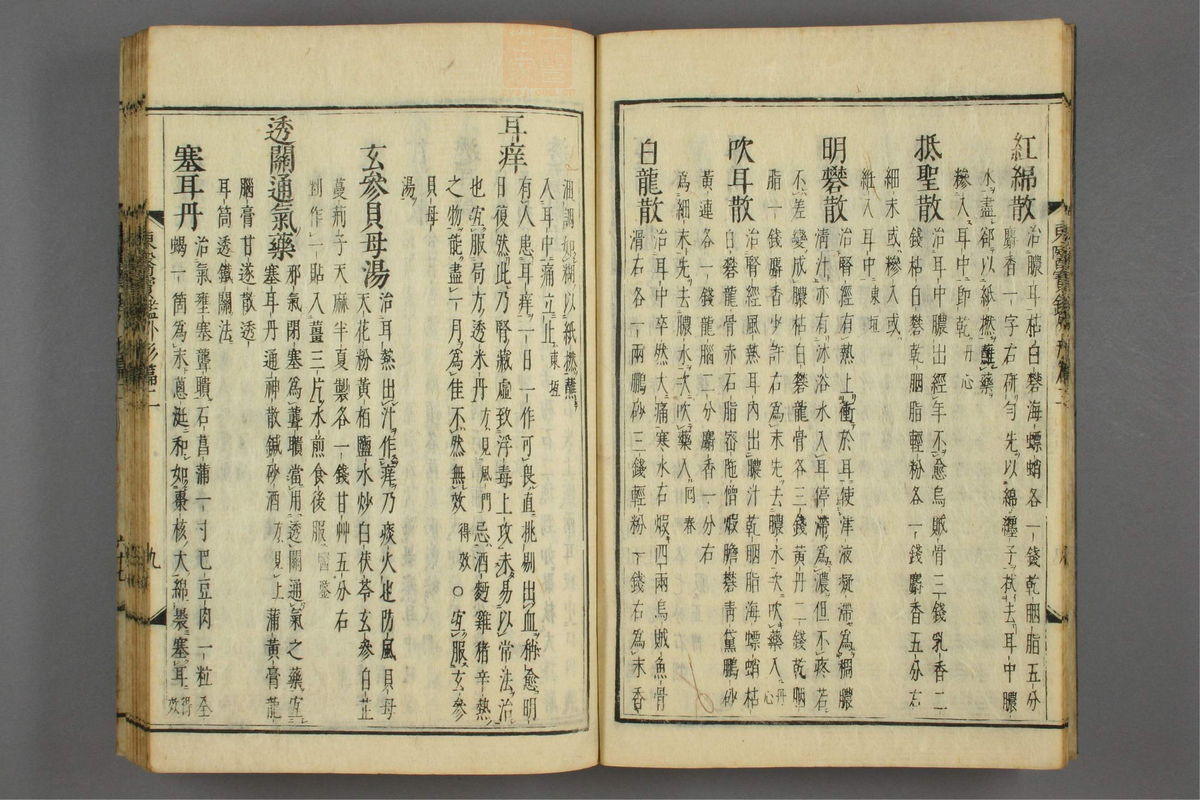 紅綿散治膿耳枯白礬海螵蛸各一錢乾胭脂五分
麝香一字右硏勻先以綿纏子拭去耳中膿
水盡卻以紙撚蘸藥
糝入耳中卽乾丹心
抵聖散治耳中膿出經年不愈烏賊骨三錢乳香二
錢枯白礬乾胭脂輕粉各一錢麝香五分右
細末或糝入或
紙入耳中東垣
明礬散治腎經有熱上衝於耳使津液凝滯爲稠膿
淸汁亦有沐浴水入耳停滯爲濃但不疼若
不差變成膿枯白礬龍骨各三錢黃丹二錢乾胭
脂一錢麝香少許右爲末先去膿水次吹藥入丹心
吹耳散治腎經風熱耳內出膿汁乾胭脂海螵蛸枯
白礬龍骨赤石脂密陀僧煆膽礬靑黛鵬砂
黃連各一錢龍腦二分麝香一分右
爲細末先去膿水次吹藥入回春
白龍散治耳中卒然大痛寒水石煆四兩烏賊魚骨
滑石各一兩鵬砂三錢輕粉一錢右爲末香
油調如糊以紙撚蘸
入耳中痛立止東垣
耳痒有人患耳痒一日一作可畏直挑剔出血稍愈明
日復然此乃腎藏虛致浮毒上攻未易以常法治
也宜服局方透氷丹方見風門忌酒麪雞猪辛熱
之物能盡一月爲佳不然無效得效○宜服玄參
貝母
湯
玄參貝母湯治耳熱出汁作痒乃痰火也防風貝母
天花粉黃栢鹽水炒白茯苓玄參白芷
蔓荊子天麻半夏製各一錢甘艸五分右
剉作一貼入薑三片水煎食後服醫鑑
透關通氣藥邪氣閉塞爲聾聵當用透關通氣之藥宜
塞耳丹通神散鍼砂酒方見上蒲黃膏龍
腦膏甘遂散透
耳筒透鐵關法
塞耳丹治氣壅塞聾聵石菖蒲一寸巴豆肉一粒全
蝎一箇爲末蔥涎和如棗核大綿裹塞耳得效
東醫寶鑑外形篇二
九